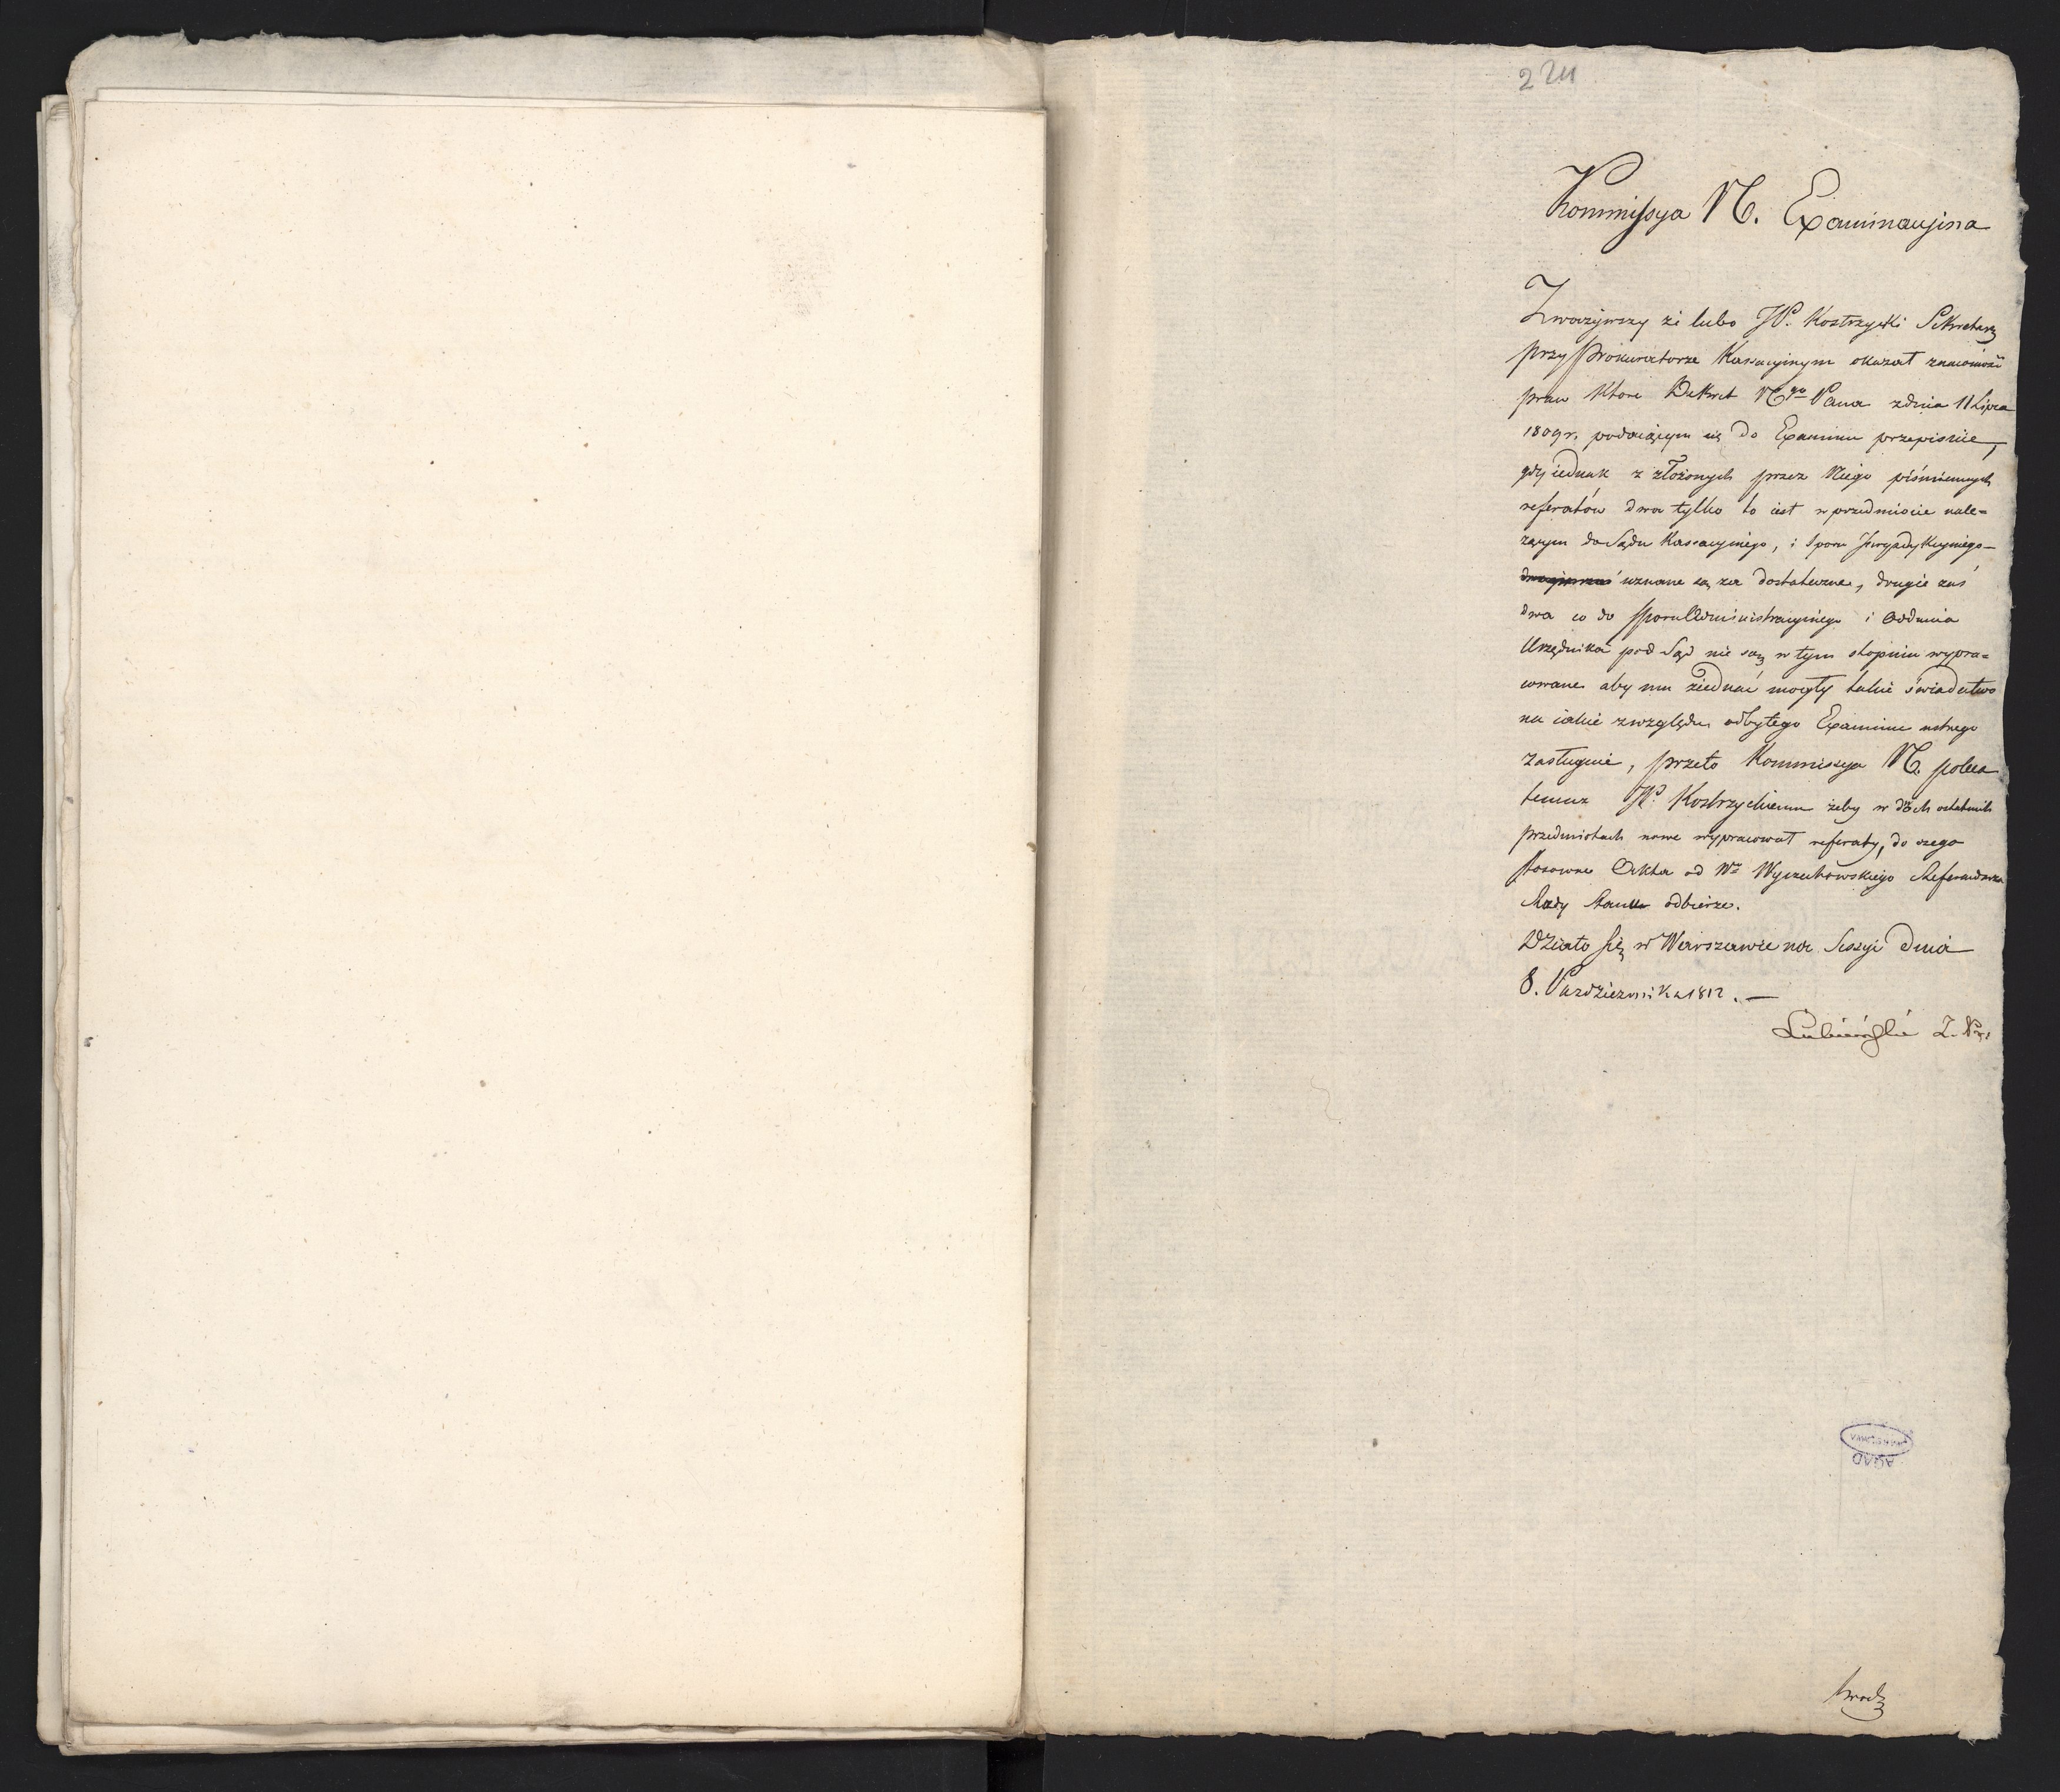 224
Kommissya N. Examinacyina
Zważywszy że lubo JP. Kostrzycki Sekretarz
przy Prokuratorze Kassacyinym okazał znaiomość
praw które Dekret N<sup>go</sup> Pana z dnia 11 Lipca
1809 r. podaiącym się do Examinu przepisuie,
gdy iednak z złożonych przez Niego piśmiennych
referatów dwa tylko to iest w przedmiocie nale=
żącym do Sądu Kassacyinego, i Sporu Jurysdykcyinego
uznane są za dostateczne, drugie zaś
dwa co do Sporu Administracyinego i Oddania
Urzędnika pod Sąd nie są w tym stopniu wypra=
cowane aby mu ziednać mogły takie świadectwo
na iakie z względu odbytego Examinu ustnego
zasługuie, przeto Kommissya N. poleca
temuż JP. Kostrzyckiemu żeby w dwóch ostatnich
przedmiotach nowe wypracował referaty, do czego
stosowne Akta od W<sup>o</sup> Wyczechowskiego Referendarza
Rady Stanu odbierze.
Działo się w Warszawie na Sessyi dnia
8. Pazdziernika 1812. —
Łubieński Z. Pr.
AGAD
WARSZAWA